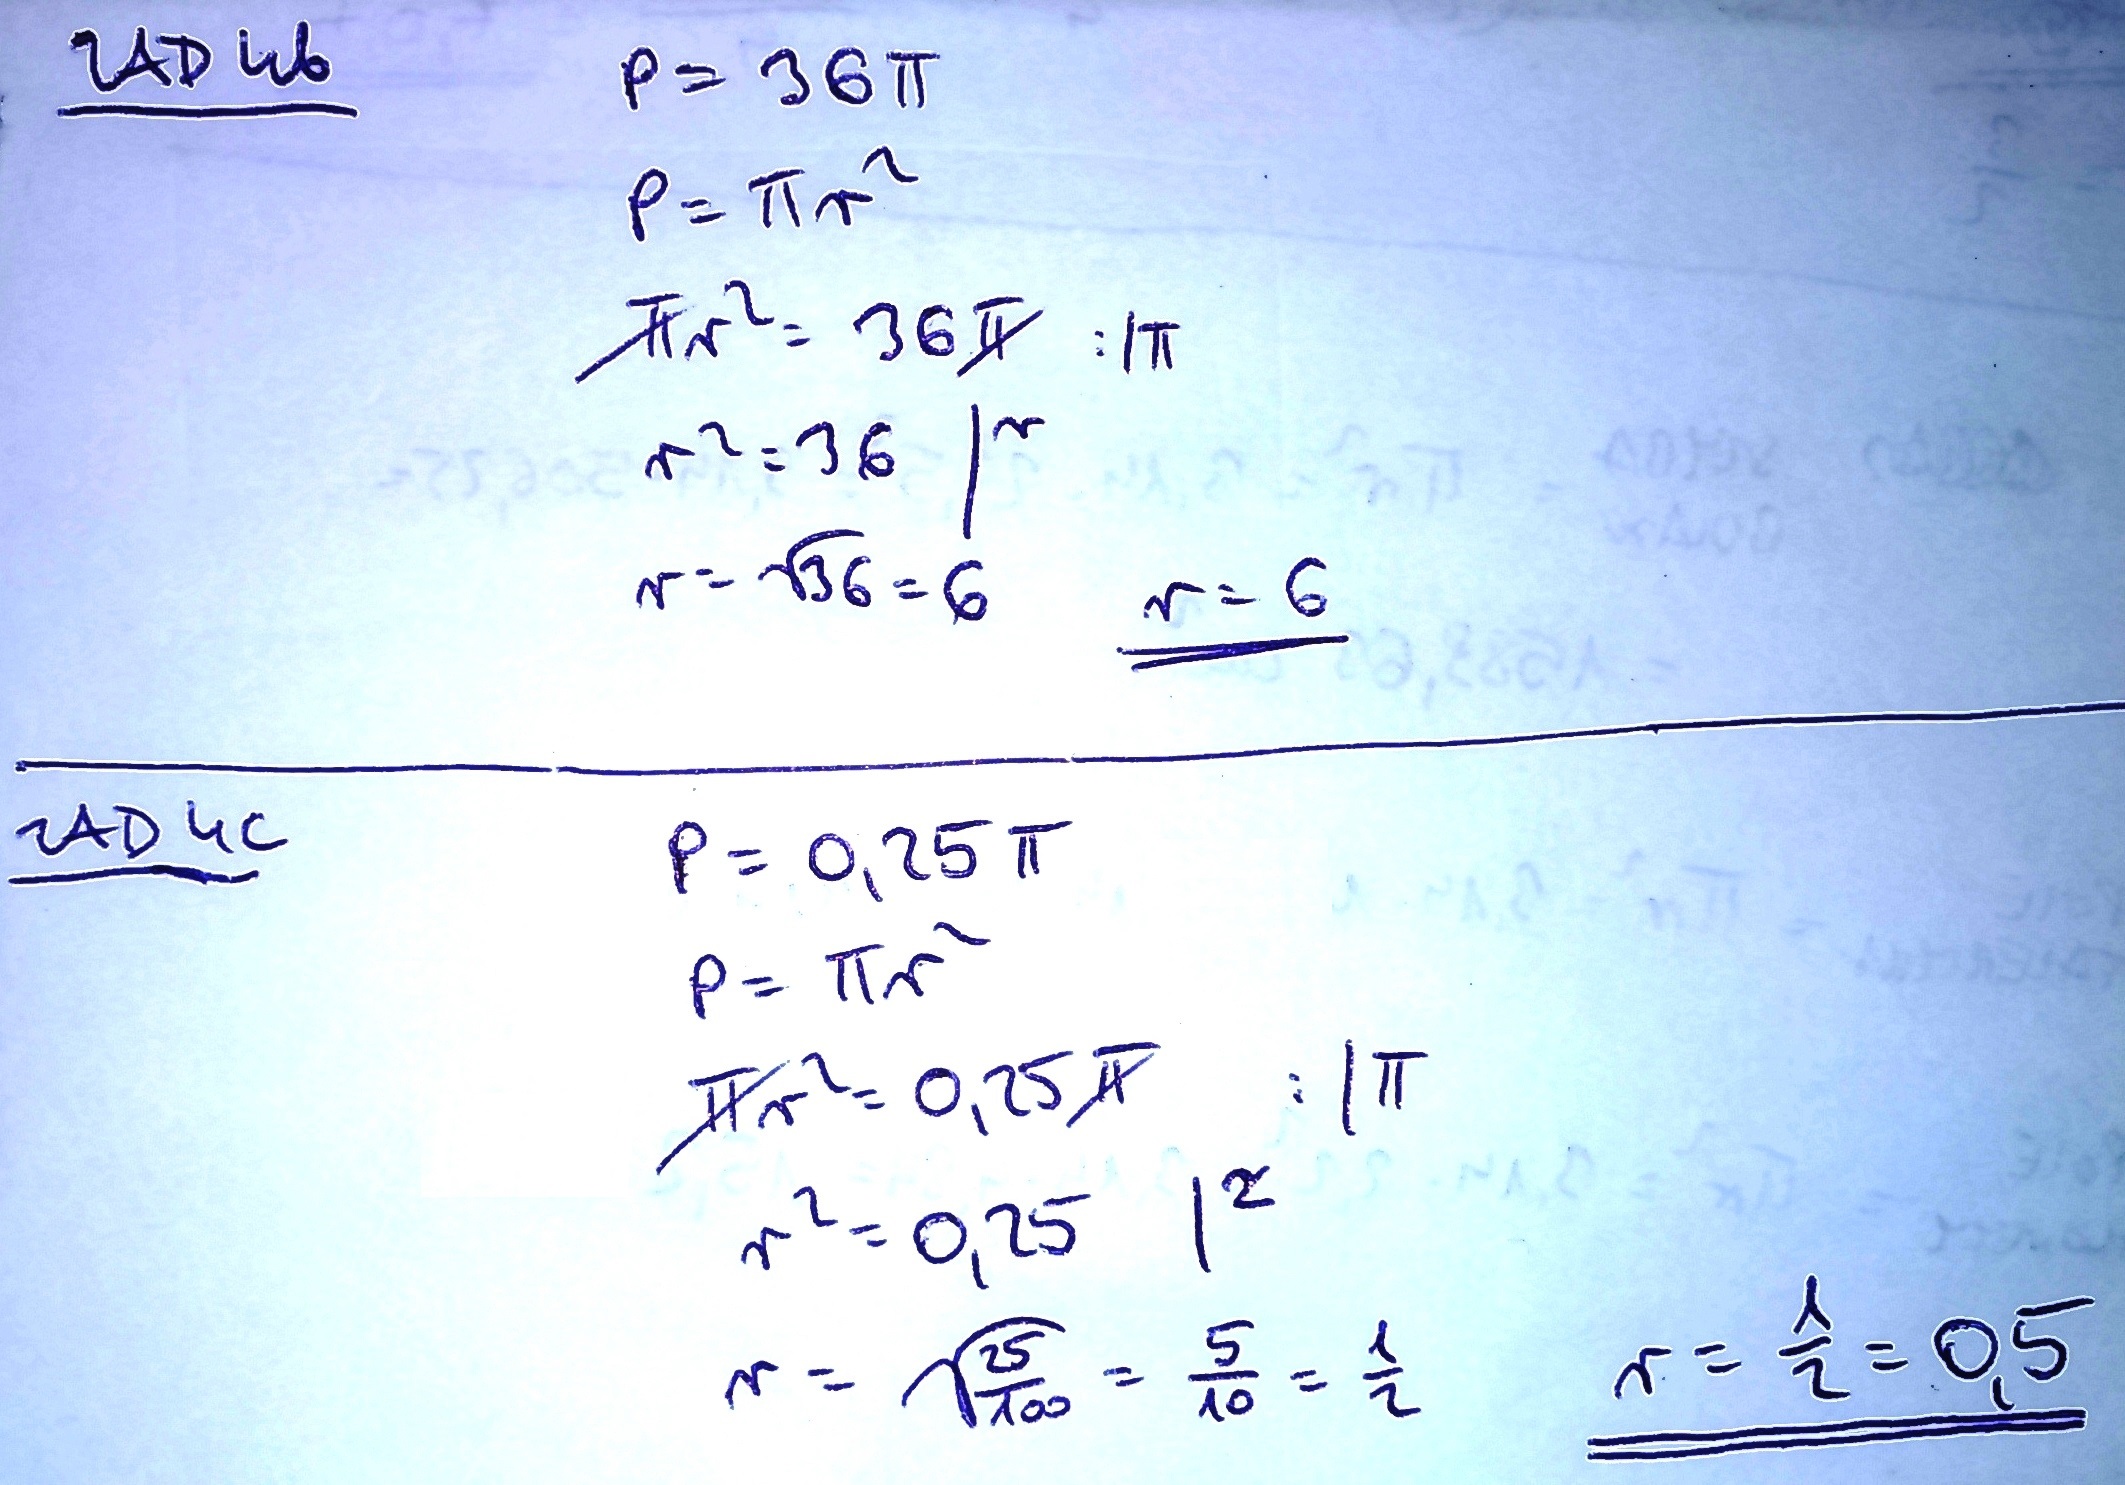 ZAD 4b
P = 36π
P = πr²
πr² = 36π :|π
r² = 36 |²
r = √36 = 6 r = 6
ZAD 4c
P = 0,25π
P = πr²
πr² = 0,25π :|π
r² = 0,25 |²
r = √25/100 = 5/10 = 1/2 r = 1/2 = 0,5